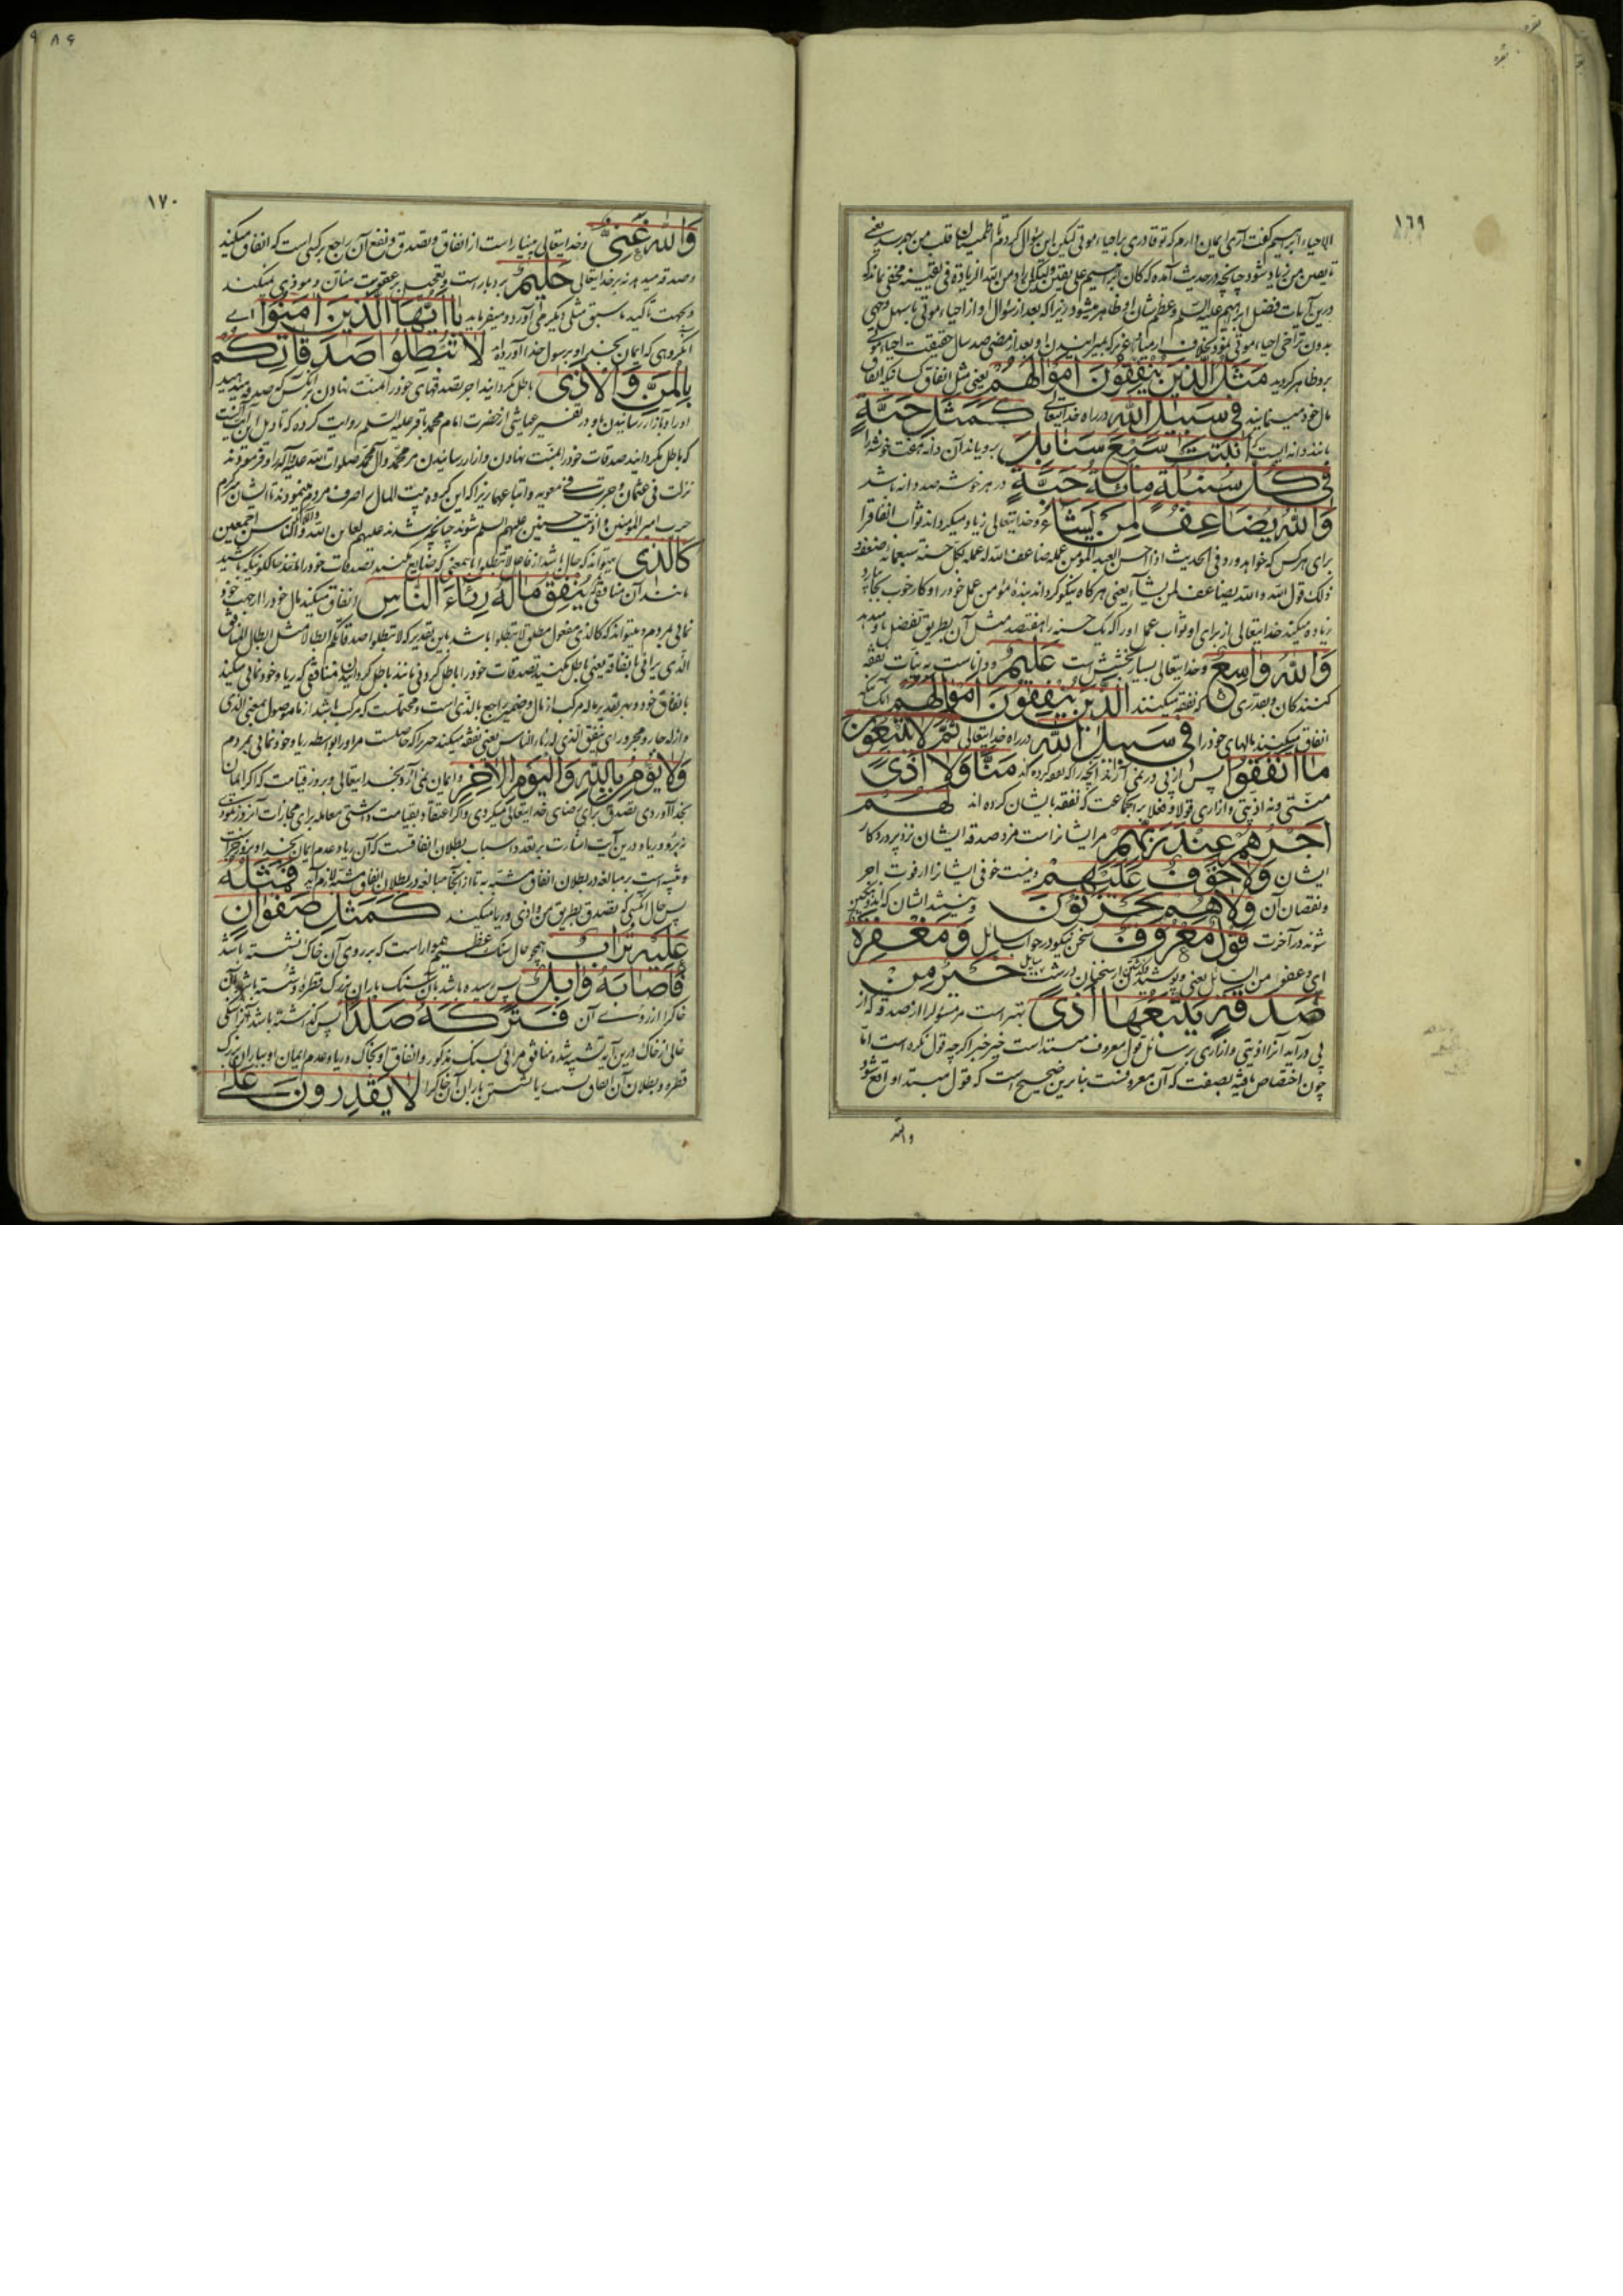 بقره
۱٦۹
الاحیاء ابراهیم گفت آری ایمان دارم که تو قادری بر احیاء موتی لیکن این سؤال کردم تا اطمینان قلب من بهم رسد یعنی
تا یقین من زیاد شود چنانچه در حدیث آمده که کان ابراهیم علی یقین ولیکن اراد من الله الزیادة فی یقینه مخفی نماند که
درین آیات فضل ابراهیم علیه السلم و عظم شان او ظاهر میشود زیرا که بعد از سؤال او از احیاء موتی باسهل وجهی
بدون تراخی احیاء موتی نمود بخلاف ارمیا و عزیر که بمیرانیدن او بعد از مضی صد سال حقیقت احیاء موتی
برو ظاهر کردید مَثَلُ الَّذینَ یُنْفِقُونَ اَمْوالَهُمْ یعنی مثل انفاق کسانیکه انفاق
مال خود مینمایند فی سَبیلِ اللهِ در راه خدایتعالی كَمَثَلِ حَبَّةٍ
مانند دانه ایست که اَنْبَتَتْ سَبْعَ سَنابِلَ برویاند آن دانه هفت خوشه را
فی كُلِّ سُنْبُلَةٍ مِائَةُ حَبَّةٍ در هر خوشه صد دانه باشد
وَاللهُ یُضاعِفُ لِمَنْ یَشاءُ و خدایتعالی زیاد میکرداند ثواب انفاق را
برای هر کس که خواهد و ورد فی الحدیث اذا احسن العبد المؤمن عمله ضاعف الله له عمله بکل حسنة سبعمائة ضعف و
ذلک قول الله والله یضاعف لمن یشآء یعنی هر کاه نیکو کرداند بندهٔ مؤمن عمل خود را و کار خوب بجا آرد
زیاده میکند خدایتعالی از برای او ثواب عمل او را که یک حسنه را هفتصد مثل آن بطریق تفضل باو میدهد
وَاللهُ واسِعٌ و خدایتعالی بسیار بخشش است عَلیمٌ و داناست به نیات نفقه
کنندکان و بقدری که نفقه میکنند اَلَّذینَ یُنْفِقُونَ اَمْوالَهُمْ آنانکه
انفاق میکنند مالهای خود را فی سَبیلِ اللهِ در راه خدایتعالی ثُمَّ لا یُتْبِعُونَ
ما اَنْفَقُوا پس از پی در نمی آرند آنچه را که نفقه کرده اند مَنًّا وَلا اَذیً
منتی و نه اذیتی و آزاری قولا و فعلا بر انجماعت که نفقه بایشان کرده اند لَهُمْ
اَجْرُهُمْ عِنْدَ رَبِّهِمْ مر ایشانراست مزد صدقه ایشان نزد پروردکار
ایشان وَلا خَوْفٌ عَلَیْهِمْ و نیست خوفی ایشانرا از فوت اجر
و نقصان آن وَلا هُمْ یَحْزَنُونَ و نیستند ایشان که اندوهکین
شوند در آخرت قَوْلٌ مَعْرُوفٌ سخن نیکو در جواب سائل وَمَغْفِرَةٌ
ای و عفو من السائل یعنی و پوشیدن از سخنان درشت سائل خَیْرٌ مِنْ
صَدَقَةٍ یَتْبَعُها اَذیً بهتر است مر مسؤلرا از صدقهٔ که از
پی در آید آنرا اذیتی و آزاری بر سائل قول معروف مبتداست خیر خبر اکرچه قول نکره است امّا
چون اختصاص یافته بصفت که آن معروفست بنابرین صحیح است که قول مبتدا واقع شود
والله
۸۶
۱۷۰
وَاللهُ غَنِیٌّ و خدایتعالی بینیاز است از انفاق و تصدق و نفع آن راجع بر کسی است که انفاق میکند
و صدقه میدهد نه بر خدایتعالی حَلیمٌ بردبار است و تعجیل بر عقوبت منّان و موذی نمیکند
و بجهت تاکید ما سبق مثلی دیکر می آورد و میفرماید یا اَیُّهَا الَّذینَ آمَنُوا ای
انکروهی که ایمان بخدا و برسول خدا آورده اند لا تُبْطِلُوا صَدَقاتِكُمْ
بِالْمَنِّ وَالْاَذی باطل مکردانید اجر تصدقهای خود را بمنت نهادن بر آنکس که صدقه میدهید
او را و بآزار رسانیدن باو و در تفسیر عیاشی از حضرت امام محمد باقر علیه السلم روایت کرده که تاویل این آیت آنست
که باطل مکردانید صدقات خود را بمنت نهادن و ازار رسانیدن مر محمد و آل محمد صلوات الله علیه و آله را و فرمودند
نزلت فی عثمان و جرت فی معویه و اتباعهما زیرا که این کروه بیت المال را صرف مردم مینمودند تا ایشان سرکرم
حرب امیر المؤمنین و اذیت حسنین علیهم السلم شوند چنانچه شدند علیهم لعاین الله والملائکة والناس اجمعین
كَالَّذی میتواند که حال باشد از فاعل لا تبطلوا باینمعنی که ضایع مکنید تصدقات خود را مانند حالکونیکه باشید
مانند آن منافقی که یُنْفِقُ مالَهُ رِئاءَ النّاسِ انفاق میکند مال خود را از جهت خود
نمائی بمردم و میتواند که کالذی مفعول مطلق لا تبطلوا باشد باین تقدیر که لا تبطلوا صدقاتکم ابطالا مثل ابطال المنافق
الّذی یرائی بانفاقه یعنی باطل مکنید تصدقات خود را باطل کردنی مانند باطل کردانیدن منافقی که ریا و خود نمائی میکند
بانفاق خود و بهر تقدیر ماله مرکب از مال و ضمیر راجع بالذی است و محتملست که مرکب باشد از ما موصول بمعنی الذی
وَلا یُؤْمِنُ بِاللهِ وَالْیَوْمِ الْآخِرِ و ایمان نمی آرد بخدایتعالی و بروز قیامت که اکر ایمان
بخدا آوردی تصدق برای رضای خدایتعالی میکردی و اکر اعتقاد بقیامت داشتی معامله برای مجازات آنروز نمودی
و تنبیه است بر مبالغه در بطلان انفاق مشبه به تا از انجا مبالغه در بطلان انفاق مشبه لازم آید فَمَثَلُهُ
پس حال آنکسی که تصدق بطریق من و اذی و ریا میکند كَمَثَلِ صَفْوانٍ
عَلَیْهِ تُرابٌ همچو حال سنک عظیم هموار است که بر روی آن خاک نشسته باشد
فَاَصابَهُ وابِلٌ پس رسیده باشد بآن سنک باران بزرک قطره و شسته باشد بآن
خاکرا از روی آن فَتَرَكَهُ صَلْدًا پس کذاشته باشد آنرا سنکی
خالی از خاک درین آیه تشبیه شده منافق مرائی بسنک مذکور و انفاق او بخاک و ریا و عدم ایمان او بباران بزرک
قطره و بطلان آن انفاق بسبب ریا بشستن باران آن خاکرا لا یَقْدِرُونَ عَلی